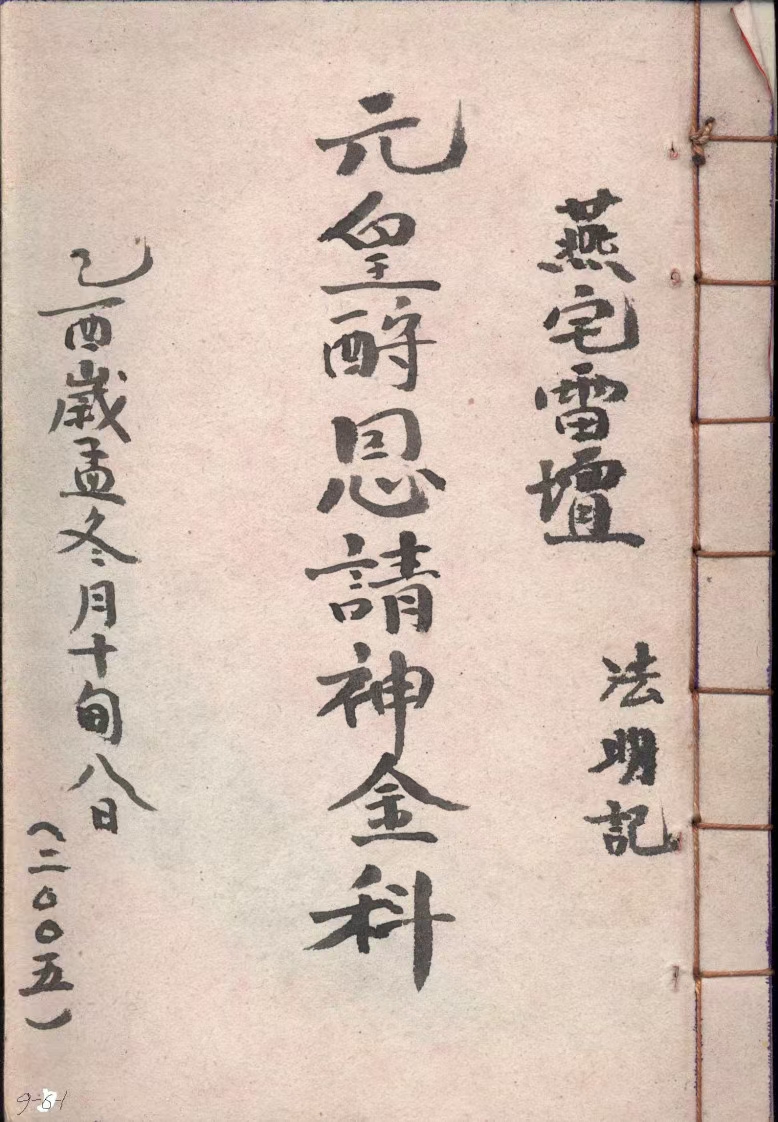 燕宅雷壇　法明記
元皇酧恩請神金科
乙酉歲孟冬月十旬八日
（二〇〇五）
9-6-1